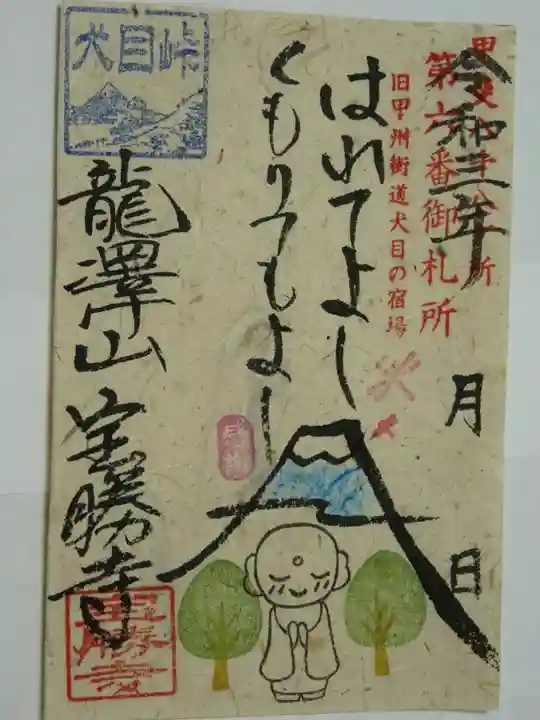 令和三年
月
日
第六番御札所
旧甲州街道犬目の宿場
はれてよし
くもりてもよし
犬目峠
龍澤山 宝勝寺